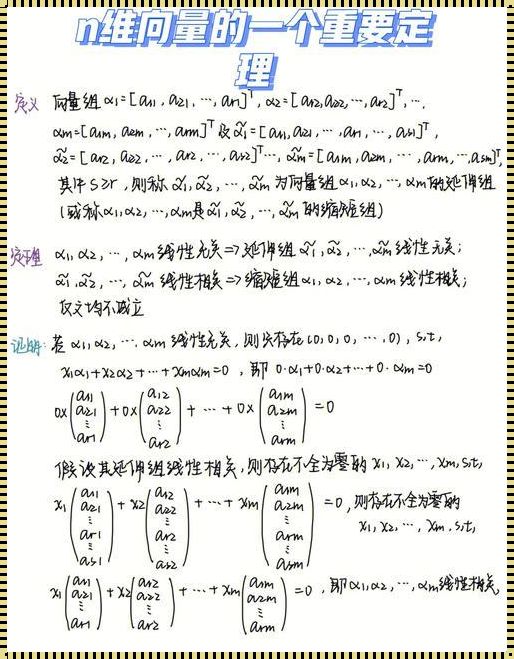 n维向量的一个重要定
理
定义 向量组 α1=[a11, a21, ⋯, ar1]ᵀ, α2=[a12, a22, ⋯, ar2]ᵀ, ⋯,
αm=[a1m, a2m, ⋯, arm]ᵀ 及 α̃1=[a11, a21, ⋯ ar1, ⋯, as1]ᵀ,
α̃2=[a12, a22, ⋯, ar2, ⋯ as2]ᵀ⋯, α̃m=[a1m, a2m, ⋯, arm, ⋯, asm]ᵀ,
其中 s≥r, 则称 α̃1, α̃2, ⋯, α̃m 为向量组 α1, α2, ⋯, αm 的延伸组
(或称 α1, α2, ⋯, αm 是 α̃1, α̃2, ⋯, α̃m 的缩短组)
定理 α1, α2, ⋯, αm 线性无关 => 延伸组 α̃1, α̃2, ⋯, α̃m 线性无关;
α̃1, α̃2, ⋯, α̃m 线性相关 => 缩短组 α1, α2, ⋯, αm 线性相关;
反之均不成立
证明: 若 α1, α2, ⋯ αm 线性无关, 则只存在 (0, 0, 0, ⋯, 0), s,t,
x1α1+x2α2+⋯+xmαm=0, 即 0·α1+0·α2+⋯+0·αm=0
0x(a11 a21 ⋮ ar1)+0x(a12 a22 ⋮ ar2)+⋯+0x(a1m a2m ⋮ arm)=0
假设其延伸组线性相关, 则存在不全为零的 x1, x2, ⋯, xm, s,t,
x1(a11 a21 ⋮ ar1 ⋮ as1)+x2(a12 a22 ⋮ ar2 ⋮ as2)+⋯+xm(a1m a2m ⋮ arm ⋮ asm)=0, 则存在不全为零的
x1, x2, ⋯, xm, s,t,
x1(a11 a21 ⋮ ar1)+x2(a12 a22 ⋮ ar2)+⋯+xm(a1m a2m ⋮ arm)=0, 即 α1, α2, ⋯, αm 线性相关,